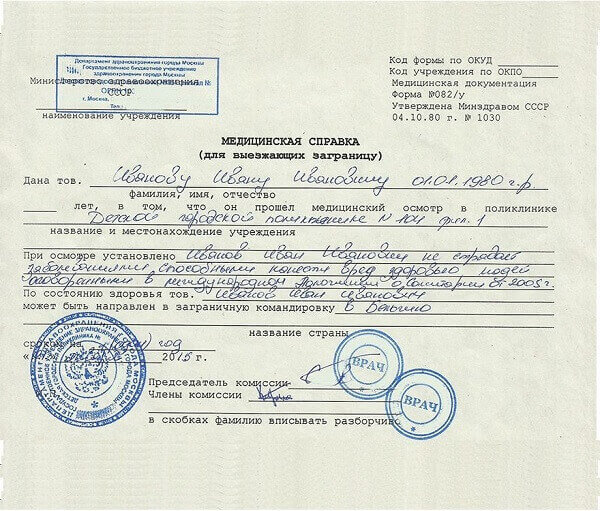 Департамент здравоохранения города Москвы
Государственное бюджетное учреждение
здравоохранения города Москвы
ОГРН 10
г. Москва,
Тел.:
Министерство здравоохранения
СССР
наименование учреждения
Код формы по ОКУД
Код учреждения по ОКПО
Медицинская документация
Форма №082/у
Утверждена Минздравом СССР
04.10.80 г. № 1030
МЕДИЦИНСКАЯ СПРАВКА
(для выезжающих заграницу)
Дана тов. Иванову Ивану Ивановичу 01.01.1980 г.р.
фамилия, имя, отчество
лет, в том, что он прошел медицинский осмотр в поликлинике
Детской городской поликлинике N 104 фил. 1
название и местонахождение учреждения
При осмотре установлено Иванов Иван Иванович не страдает
заболеваниями способными нанести вред здоровью людей
в международном о санитарии от 2005 г.
По состоянию здоровья тов. Иванов Иван Иванович
может быть направлен в заграничную командировку в Бельгию
название страны
сроком на 1 год
2015 г.
Председатель комиссии
Члены комиссии
в скобках фамилию вписывать разборчиво
ВРАЧ
ВРАЧ